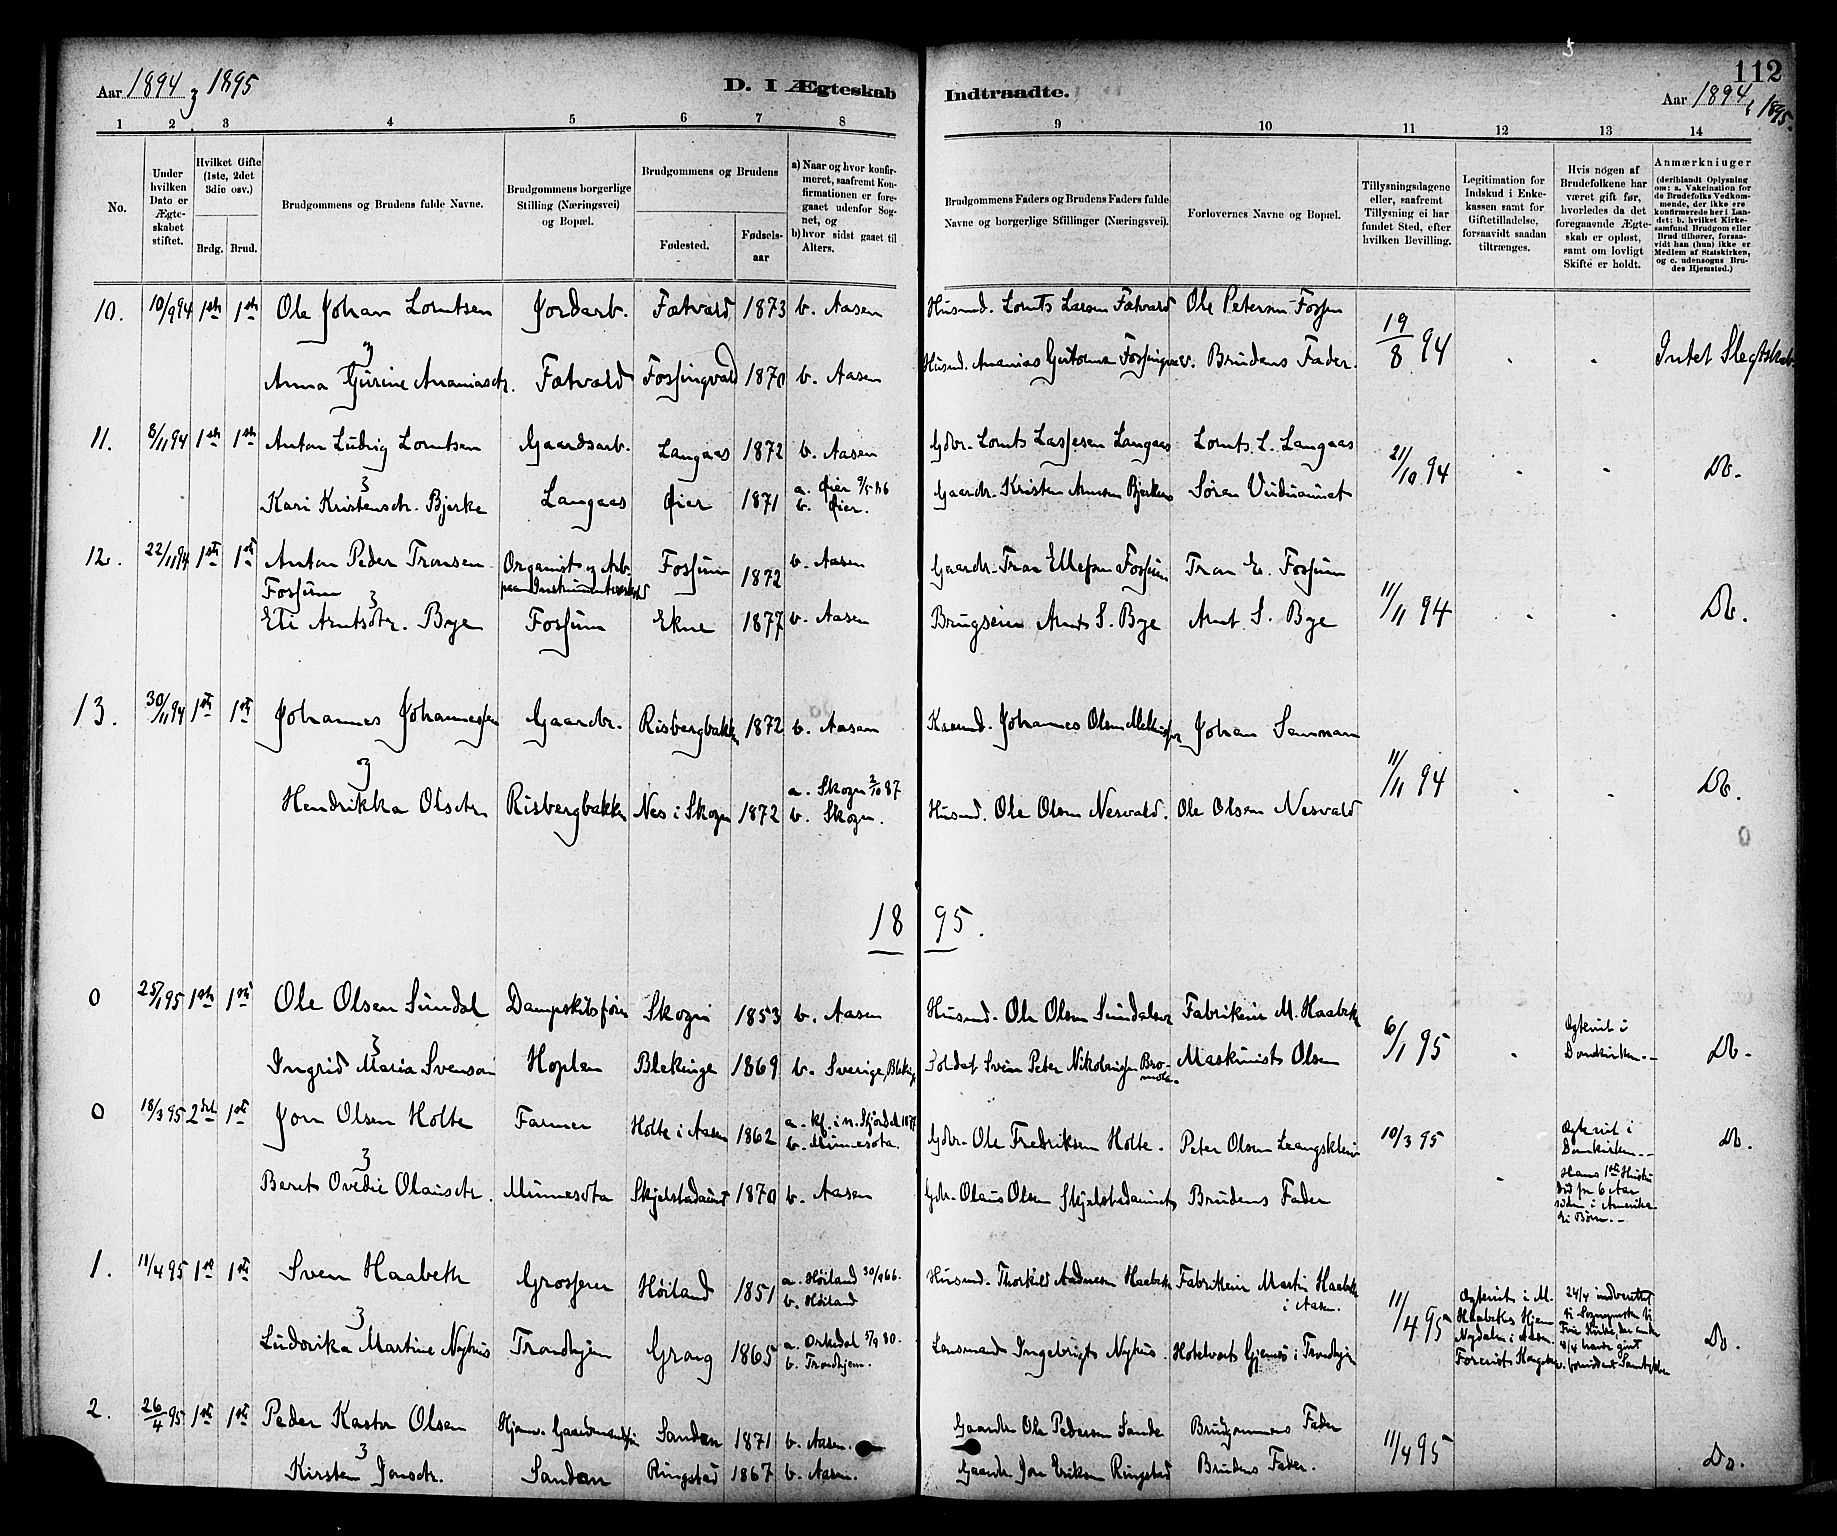 112
Aar 1894 & 1895
D. I Ægteskab Indtraadte.
Aar 1894 & 1895.
1 2 3 4 5 6 7 8 9 10 11 12 13 14
No.
Under hvilken Dato er Ægteskabet stiftet.
Hvilket Gifte (1ste, 2det 3die osv.)
Brdg. Brud.
Brudgommens og Brudens fulde Navne.
Brudgommens borgerlige Stilling (Næringsvei) og Bopæl.
Brudgommens og Brudens
Fødested.
Fødselsaar
a) Naar og hvor konfirmeret, saafremt Konfirmationen er foregaaet udenfor Sognet, og
b) hvor sidst gaaet til Alters.
Brudgommens Faders og Brudens Faders fulde Navne og borgerlige Sfillinger (Næringsvei).
Forlovernes Navne og Bopæl.
Tillysningsdagene eller, saafremt Tillysning ei har fundet Sted, efter hvilken Bevilling.
Legitimation for Indskud i Enkekassen samt for Giftetilladelse, forsaavidt saadan tiltrænges.
Hvis nogen af Brudefolkene har været gift før, hvorledes da det foregaaende Ægteskab er opløst, samt om lovligt Skifte er holdt.
Anmærkninger
(deriblandt Oplysning om: a. Vakcination for de Brudefolks Vedkommende, der ikke ere konfirmerede her i Landet; b. hvilket Kirkesamfund Brudgom eller Brud tilhører, forsaavidt han (hun) ikke er Medlem af Statskirken, og c. udensogns Brudes Hjemsted.)
10. 10/9 94 1ste 1ste Ole Johan Lorntsen Jordarb. Fætvald 1873 b. Aasen Husmd. Lornts Larsen Fætvald Ole Petersen Fossen 19/8 94 Intet Slegtskab.
& Anna Gurine Ananiasdtr. Fætvald Fossingvald 1870 b. Aasen Husmd. Ananias Fossingvald. Brudens Fader.
11. 8/11 94 1ste 1ste Anton Ludvig Lorntsen Gaardsarb. Langaas 1872 b. Aasen Gdbr. Lornts Lassesen Langaas Lornts L. Langaas 21/10 94 Do.
& Kari Kristensdtr. Bjerke Langaas Øier 1871 a. Øier 9/5 86 b. Øier. Gaardbr. Kristen Arnesen Bjerken Søren Vuduaunet
12. 22/11 94 1ste 1ste Anton Peder Tronsen Organist og Arb. Fossum 1872 b. Aasen Gaardbr. Tron Ellefsen Fossum Tron E. Fossum 11/11 94 Do.
Fossum
& Eli Arntsdtr. Bye Fossum Ekne 1877 b. Aasen Brugseier Arnt S. Bye Arnt S. Bye
13. 30/11 94 1ste 1ste Johannes Johannessen Gaardbr. Risbergbakken 1872 b. Aasen Johannes Olsen Johan Sennan 11/11 94 Do.
& Hendrikka Olsdtr Risbergbakken Nes i Skogn 1872 a. Skogn 2/10 87 b. Skogn. Husmd. Ole Olsen Nesvald. Ole Olsen Nesvald
1895.
0 25/1 95 1ste 1ste Ole Olsen Sundal Dampskibsfører Skogn 1853 b. Aasen Husmd. Ole Olsen Sundalsør Fabrikeier M. Haabeth 6/1 95 Ægteviet i Domkirken. Do.
& Ingrid Maria Svenson Hoplen Blekinge 1869 b. Sverige, Blekinge Soldat Sven Peter Maskinist Olsen
0 18/3 95 2det 1ste Jon Olsen Holte Farmer Holte i Aasen 1862 a. kf. i n. Stjørdal b. Minnesota. Gdbr. Ole Fredriksen Holte. Peter Olsen Leangsklein 10/3 95 Ægteviet i Domkirken. Do.
& Beret Ovedie Olausdtr. Minnesota Skjelstadaunet 1870 b. Aasen Gdbr. Olaus Olsen Skjelstadaunet Brudens Fader Hans 1ste Hustru død for 6 Aar siden i Amerika. Ei Børn.
1. 11/4 95 1ste 1ste Sven Haabeth Grosserer Høiland 1851 a. Høiland 30/9 66. b. Høiland Husmd. Thorkild Andersen Haabeth Fabrikeier Martin Haabeth i Aasen. 11/4 95 Ægteviet i M. Haabeths Hjem Nydalen i Aasen. Do.
& Ludovika Martine Nyhus Trondhjem Grong 1865 a. Orkedal 5/9 80. b. Trondhjem. Lensmand Ingebrigt Nyhus. Hotelvært Gjemes i Trondhjem
2. 26/4 95 1ste 1ste Peder Kastor Olsen Hjemv. Sandan 1871 b. Aasen. Gaardbr Ole Pedersen Sande Brudgommens Fader 11/4 95 Do.
& Kirsten Jonsdtr. Sandan Ringstad 1867 b. Aasen. Gaardbr Jon Eriksen Ringstad Brudens Fader.